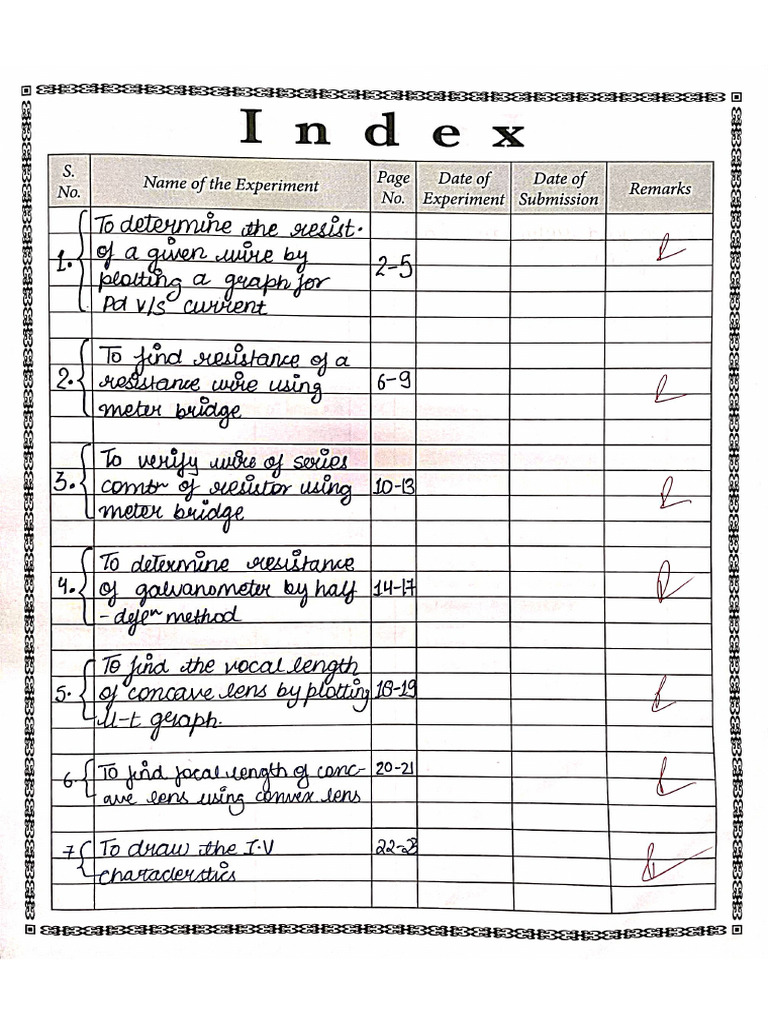 Index
S. No. Name of the Experiment Page No. Date of Experiment Date of Submission Remarks
To determine the resist.
1. of a given wire by 2-5
plotting a graph for
Pd v/s current
To find resistance of a
2. resistance wire using 6-9
meter bridge
To verify wire of series
3. combn of resistor using 10-13
meter bridge
To determine resistance
4. of galvanometer by half 14-17
-defⁿ method
To find the vocal length
5. of concave lens by plotting 18-19
graph.
6. To find focal length of conc- 20-21
ave lens using convex lens
7 To draw the I.V 22-23
characterstics